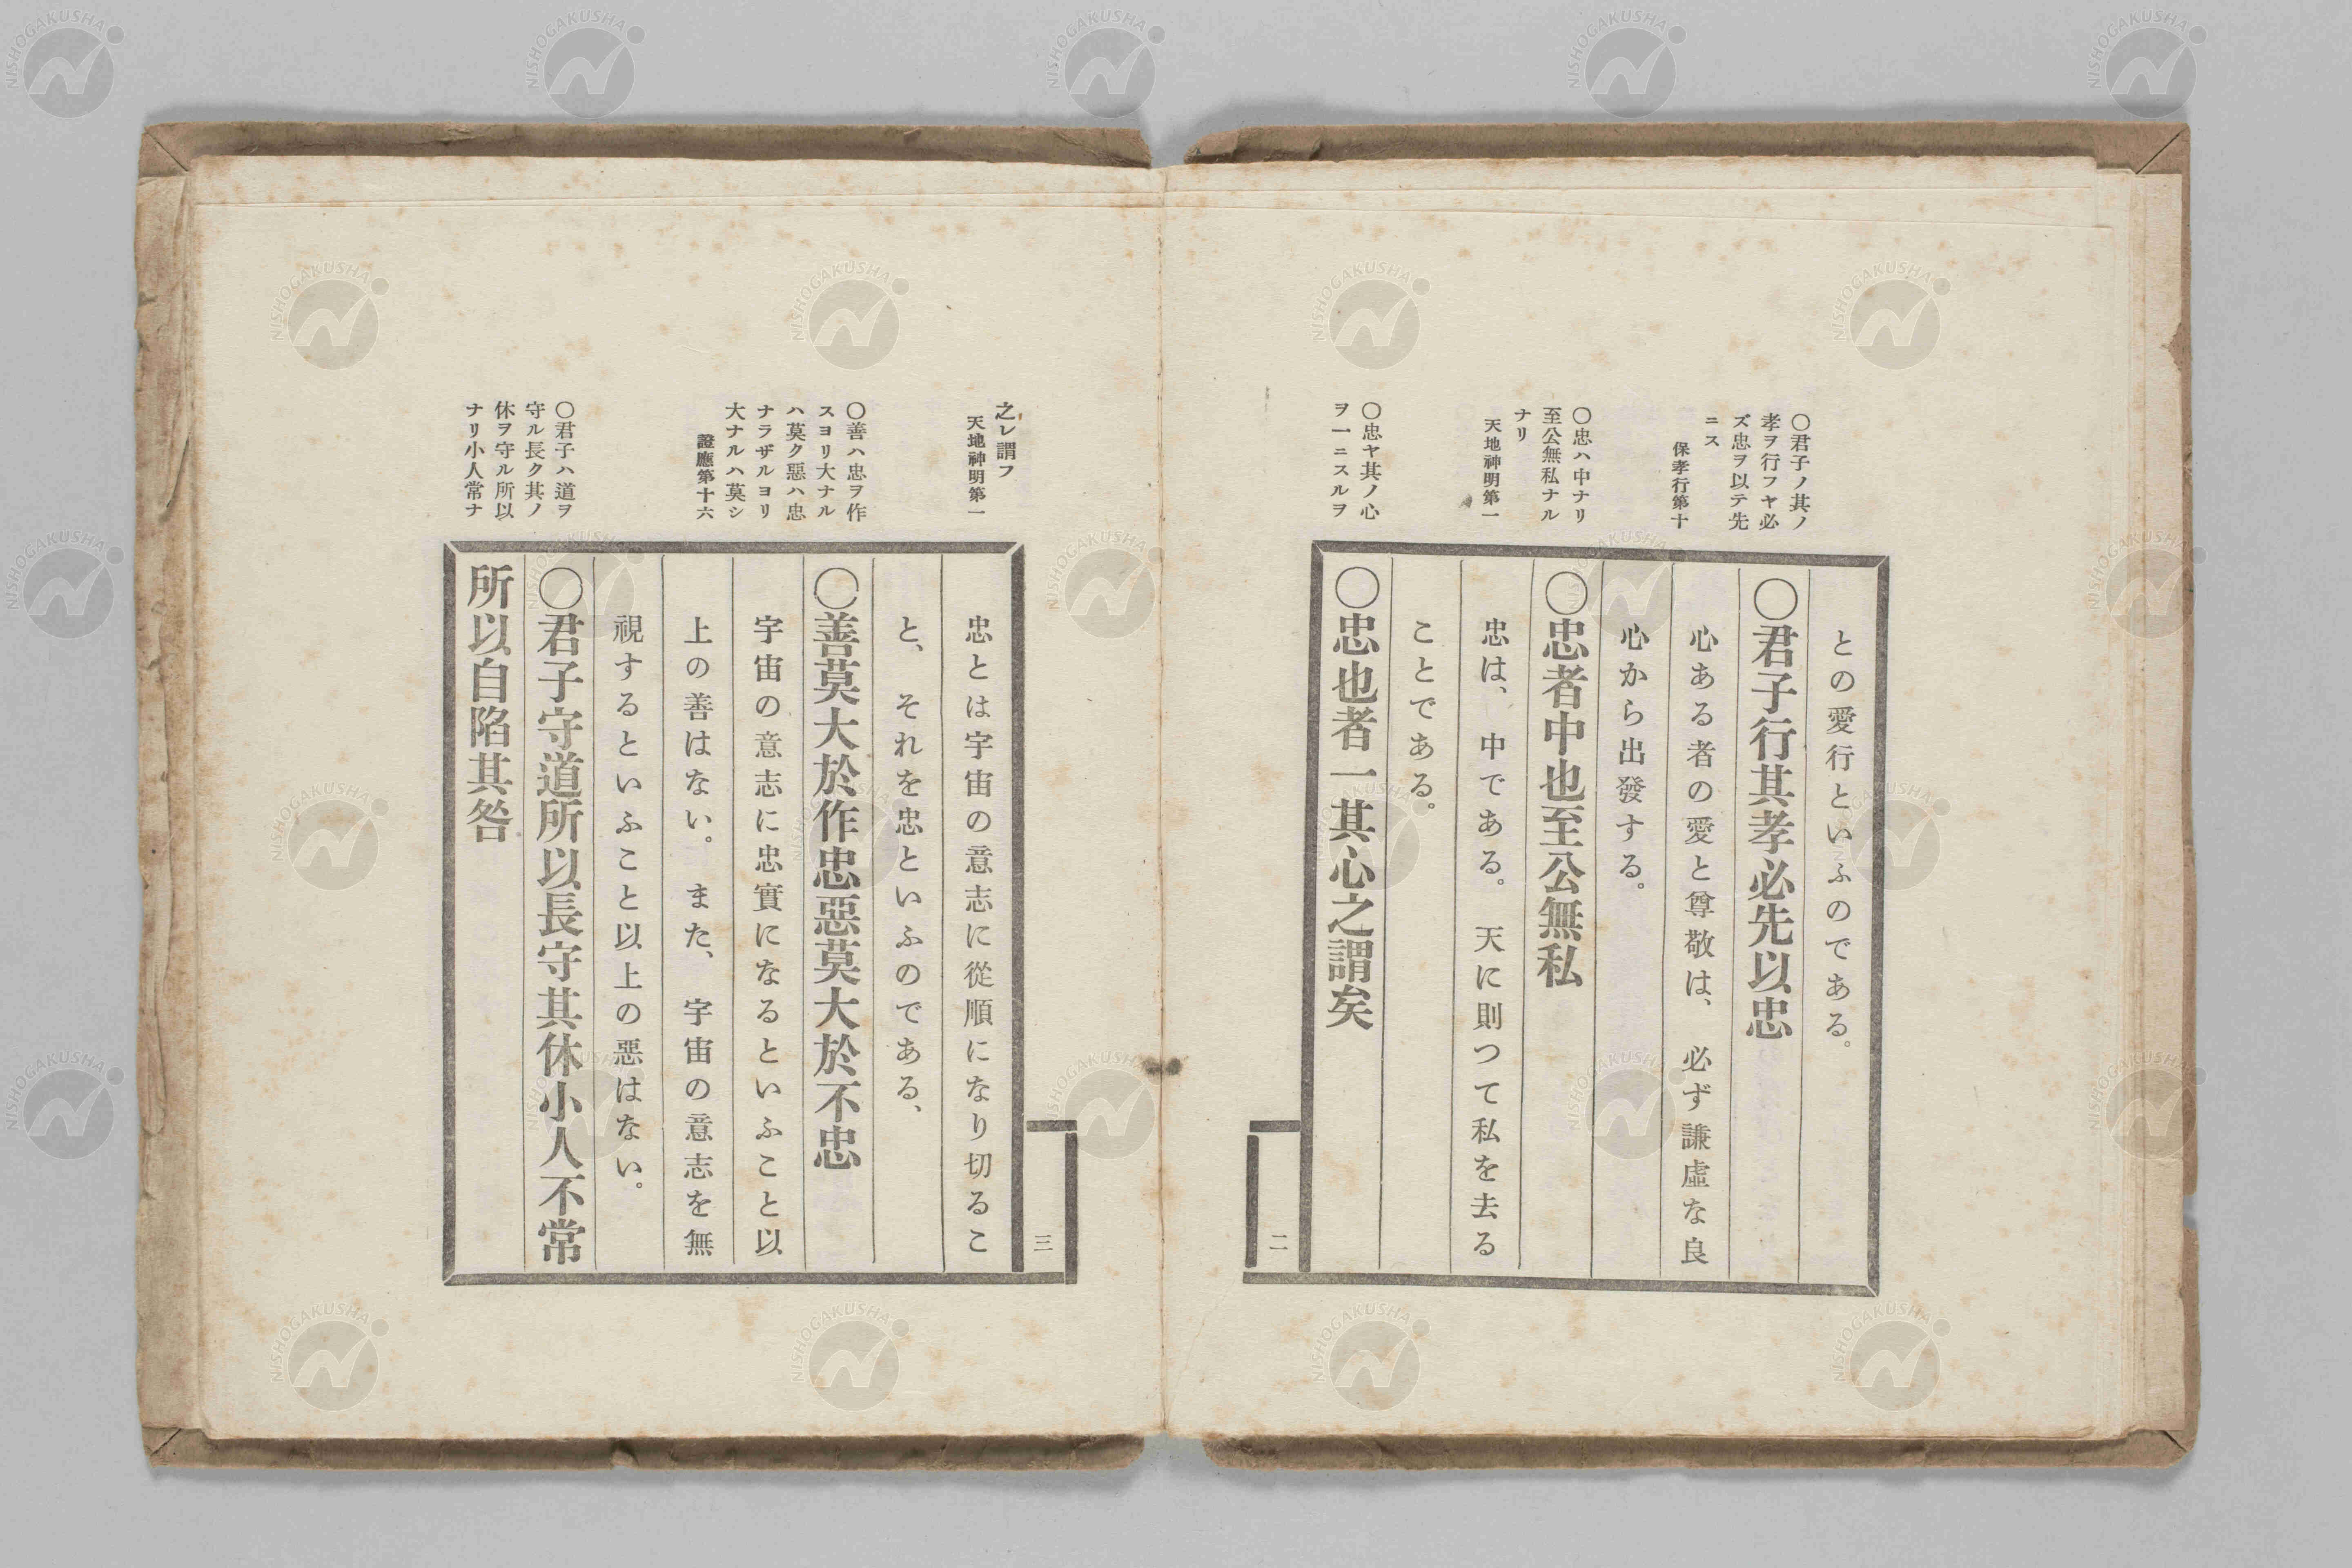 〇君子ノ其ノ
孝ヲ行フヤ必
ズ忠ヲ以テ先
ニス
保孝行第十
〇忠ハ中ナリ
至公無私ナル
ナリ
天地神明第一
〇忠ヤ其ノ心
ヲ一ニスルヲ
との愛行といふのである。
〇君子行其孝必先以忠
心ある者の愛と尊敬は、必ず謙虛な良
心から出發する。
〇忠者中也至公無私
忠は、中である。天に則つて私を去る
ことである。
〇忠也者一其心之謂矣
二
之レ謂フ
天地神明第一
〇善ハ忠ヲ作
スヨリ大ナル
ハ莫ク惡ハ忠
ナラザルヨリ
大ナルハ莫シ
證應第十六
〇君子ハ道ヲ
守ル長ク其ノ
休ヲ守ル所以
ナリ小人常ナ
忠とは宇宙の意志に從順になり切るこ
と、それを忠といふのである、
〇善莫大於作忠惡莫大於不忠
宇宙の意志に忠實になるといふこと以
上の善はない。また、宇宙の意志を無
視するといふこと以上の惡はない。
〇君子守道所以長守其休小人不常
所以自陷其咎
三
NISHOGAKUSHA